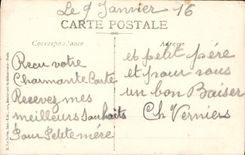 Le 9 Janvier 16
CARTE POSTALE
Correspondance
Adresse
Recu votre
Charmante Carte
Recevez mes
meilleurs Souhaits
Pour Petite mére
et petit pére
et pour vous
un bon Baiser
Ch Verniers